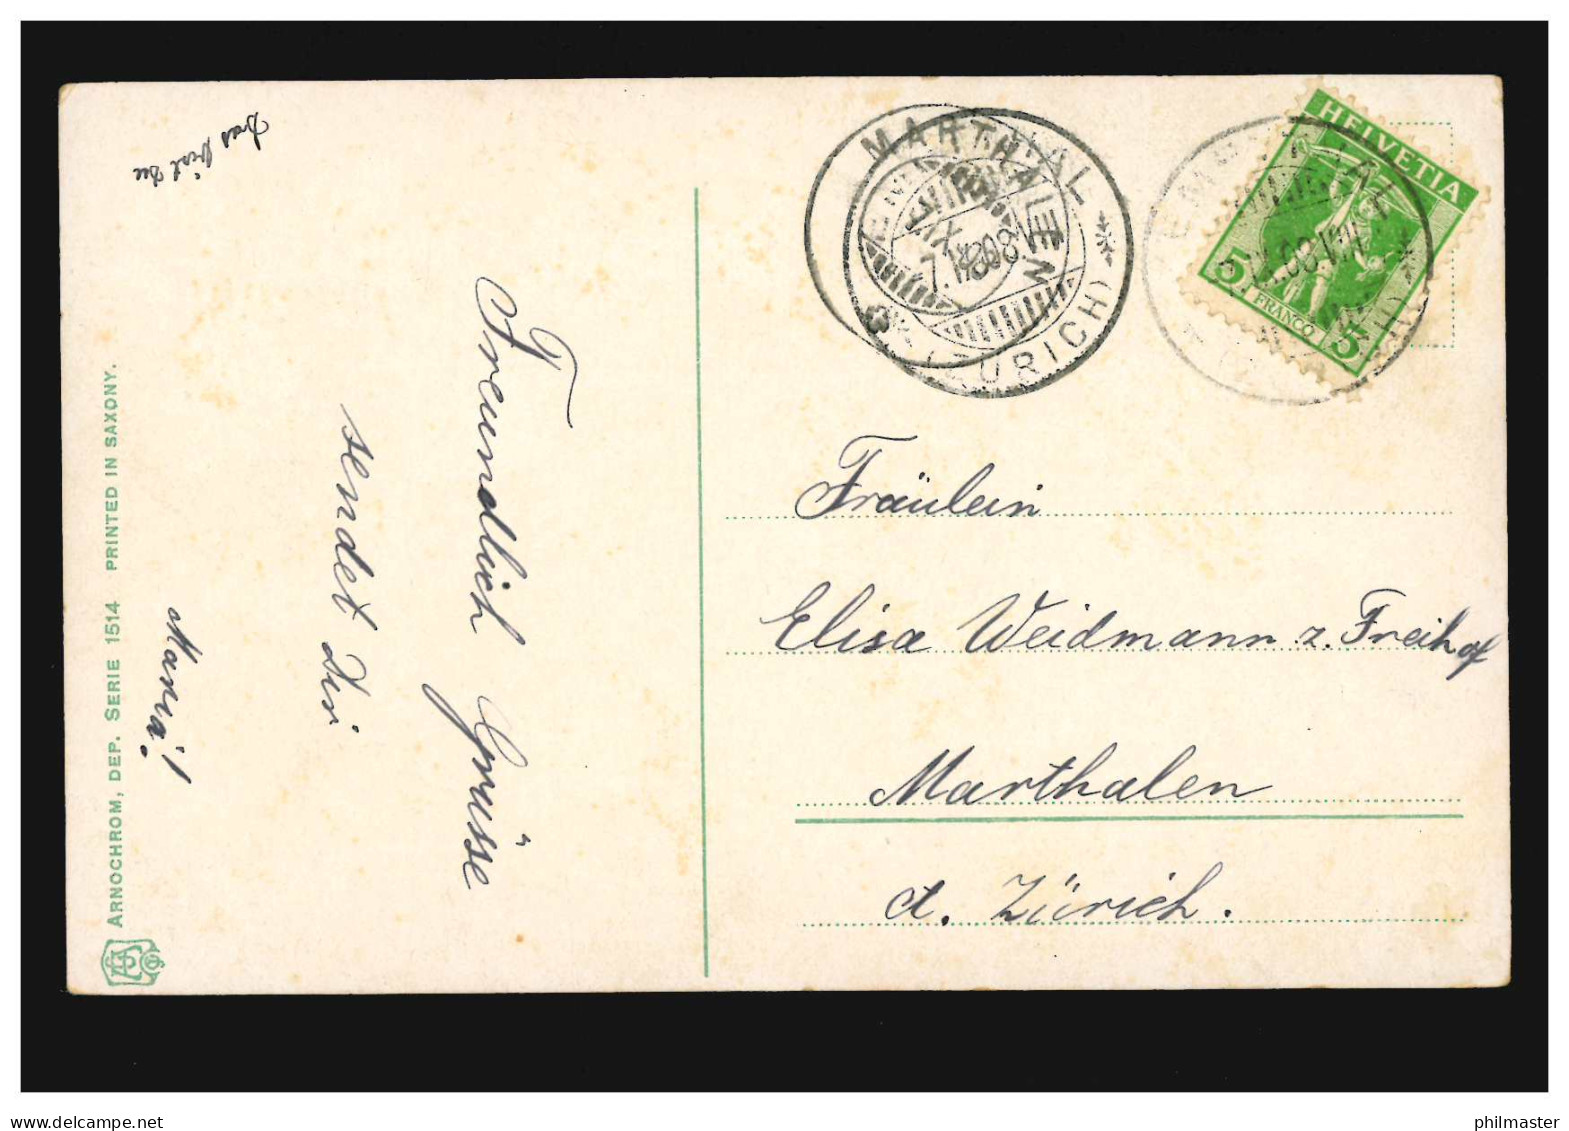 Das bist Du
Freundlich Grüsse
sendet Dir
Maria!
ARNOCHROM, DEP. SERIE 1514 PRINTED IN SAXONY.
MARTHALEN
(ZÜRICH)
HELVETIA
5 FRANCO 5
Fräulein
Elisa Weidmann z. Freihof
Marthalen
ct. Zürich.
www.delcampe.net
philmaster